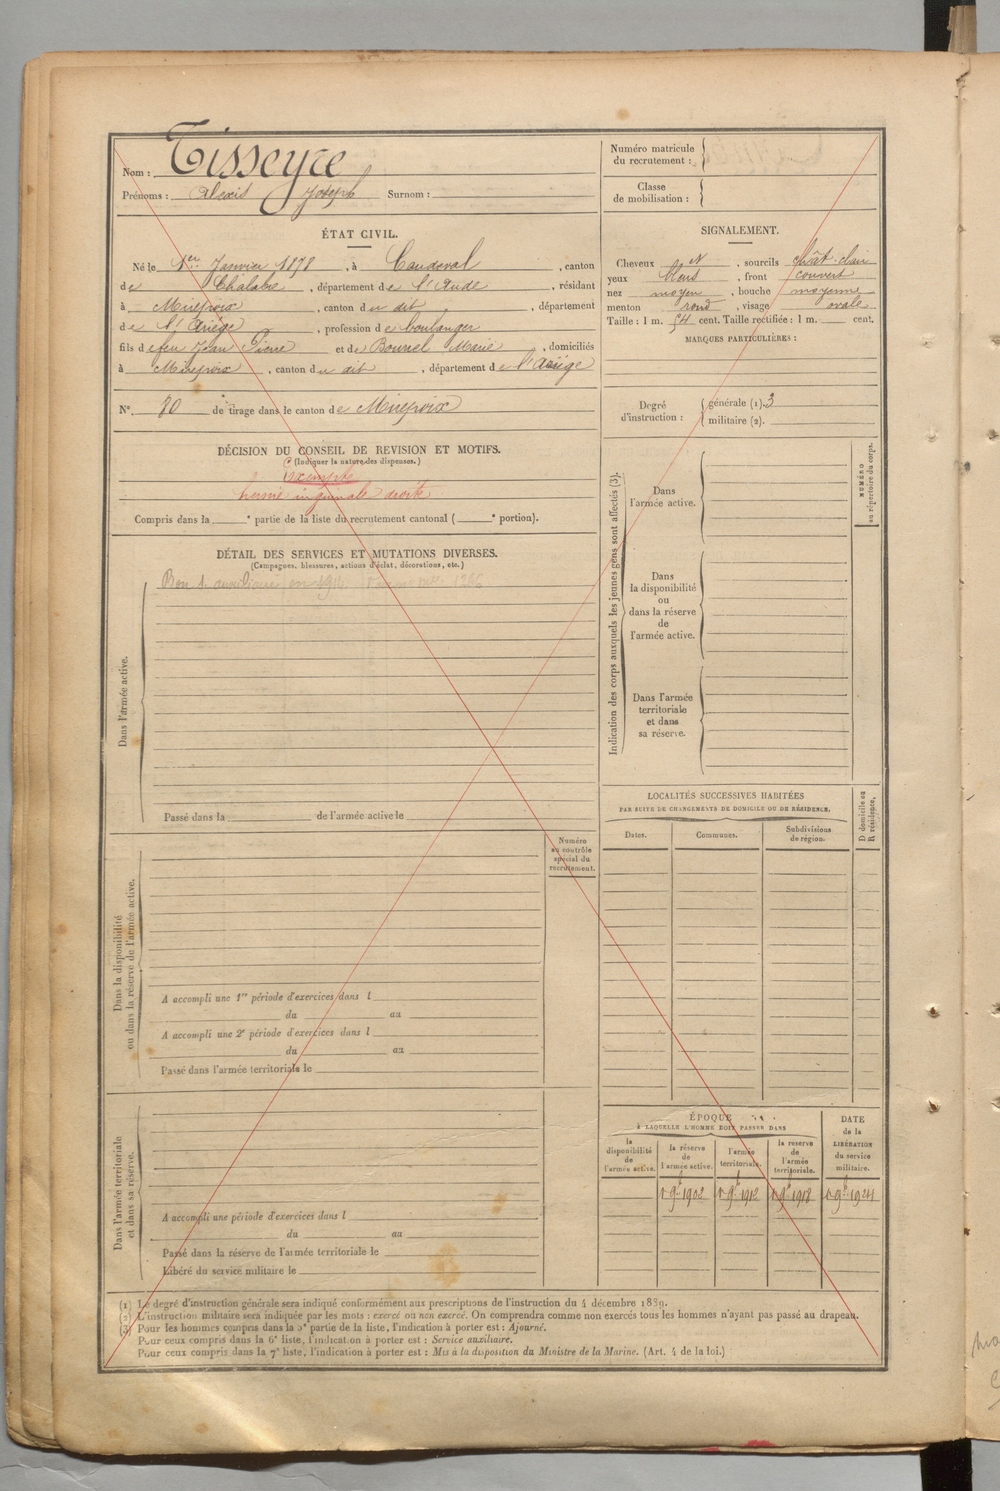 Nom : Tisseyre
Prénoms : Alexis Joseph Surnom :
Numéro matricule
du recrutement :
Classe
de mobilisation :
ÉTAT CIVIL.
Né le 1er Janvier 1878, à Caudeval, canton
de Chalabre, département de l'Aude, résidant
à Mirepoix, canton du dit, département
de l'Ariège, profession de boulanger
fils de feu Jean Pierre et de Bourrel Marie, domiciliés
à Mirepoix, canton du dit, département de l'Ariège
N° 80 de tirage dans le canton de Mirepoix
SIGNALEMENT.
Cheveux N, sourcils chât. clair
yeux bleus, front couvert
nez moyen, bouche moyenne
menton rond, visage ovale
Taille : 1 m. 54 cent. Taille rectifiée : 1 m. cent.
MARQUES PARTICULIÈRES :
Degré
d'instruction :
générale (1). 3
militaire (2).
DÉCISION DU CONSEIL DE REVISION ET MOTIFS.
(Indiquer la nature des dispenses.)
Exempté
hernie inguinale droite
Compris dans la e partie de la liste du recrutement cantonal ( e portion).
DÉTAIL DES SERVICES ET MUTATIONS DIVERSES.
(Campagnes, blessures, actions d'éclat, décorations, etc.)
Bon s. auxiliaire en 1914
Dans l'armée active.
Passé dans la de l'armée active le
Indication des corps auxquels les jeunes gens sont affectés (3).
Dans
l'armée active.
Dans
la disponibilité
ou
dans la réserve
de
l'armée active.
Dans l'armée
territoriale
et dans
sa réserve.
NUMÉRO
au répertoire du corps.
LOCALITÉS SUCCESSIVES HABITÉES
PAR SUITE DE CHANGEMENTS DE DOMICILE OU DE RÉSIDENCE.
Dates.
Communes.
Subdivisions
de région.
D domicile ou
R résidence.
Numéro
au contrôle
spécial du
recrutement.
Dans la disponibilité
ou dans la réserve de l'armée active.
A accompli une 1re période d'exercices dans l
du au
A accompli une 2e période d'exercices dans l
du au
Passé dans l'armée territoriale le
Dans l'armée territoriale
et dans sa réserve.
A accompli une période d'exercices dans l
du au
Passé dans la réserve de l'armée territoriale le
Libéré du service militaire le
ÉPOQUE
À LAQUELLE L'HOMME DOIT PASSER DANS
la
disponibilité
de
l'armée active.
la réserve
de
l'armée active.
l'armée
territoriale.
la réserve
de
l'armée
territoriale.
DATE
de la
LIBÉRATION
du service
militaire.
1 9bre 1902
1 9bre 1912
1 9bre 1918
1 9bre 1924
(1) Le degré d'instruction générale sera indiqué conformément aux prescriptions de l'instruction du 4 décembre 1889.
(2) L'instruction militaire sera indiquée par les mots : exercé ou non exercé. On comprendra comme non exercés tous les hommes n'ayant pas passé au drapeau.
(3) Pour les hommes compris dans la 5e partie de la liste, l'indication à porter est : Ajourné.
Pour ceux compris dans la 6e liste, l'indication à porter est : Service auxiliaire.
Pour ceux compris dans la 7e liste, l'indication à porter est : Mis à la disposition du Ministre de la Marine. (Art. 4 de la loi.)